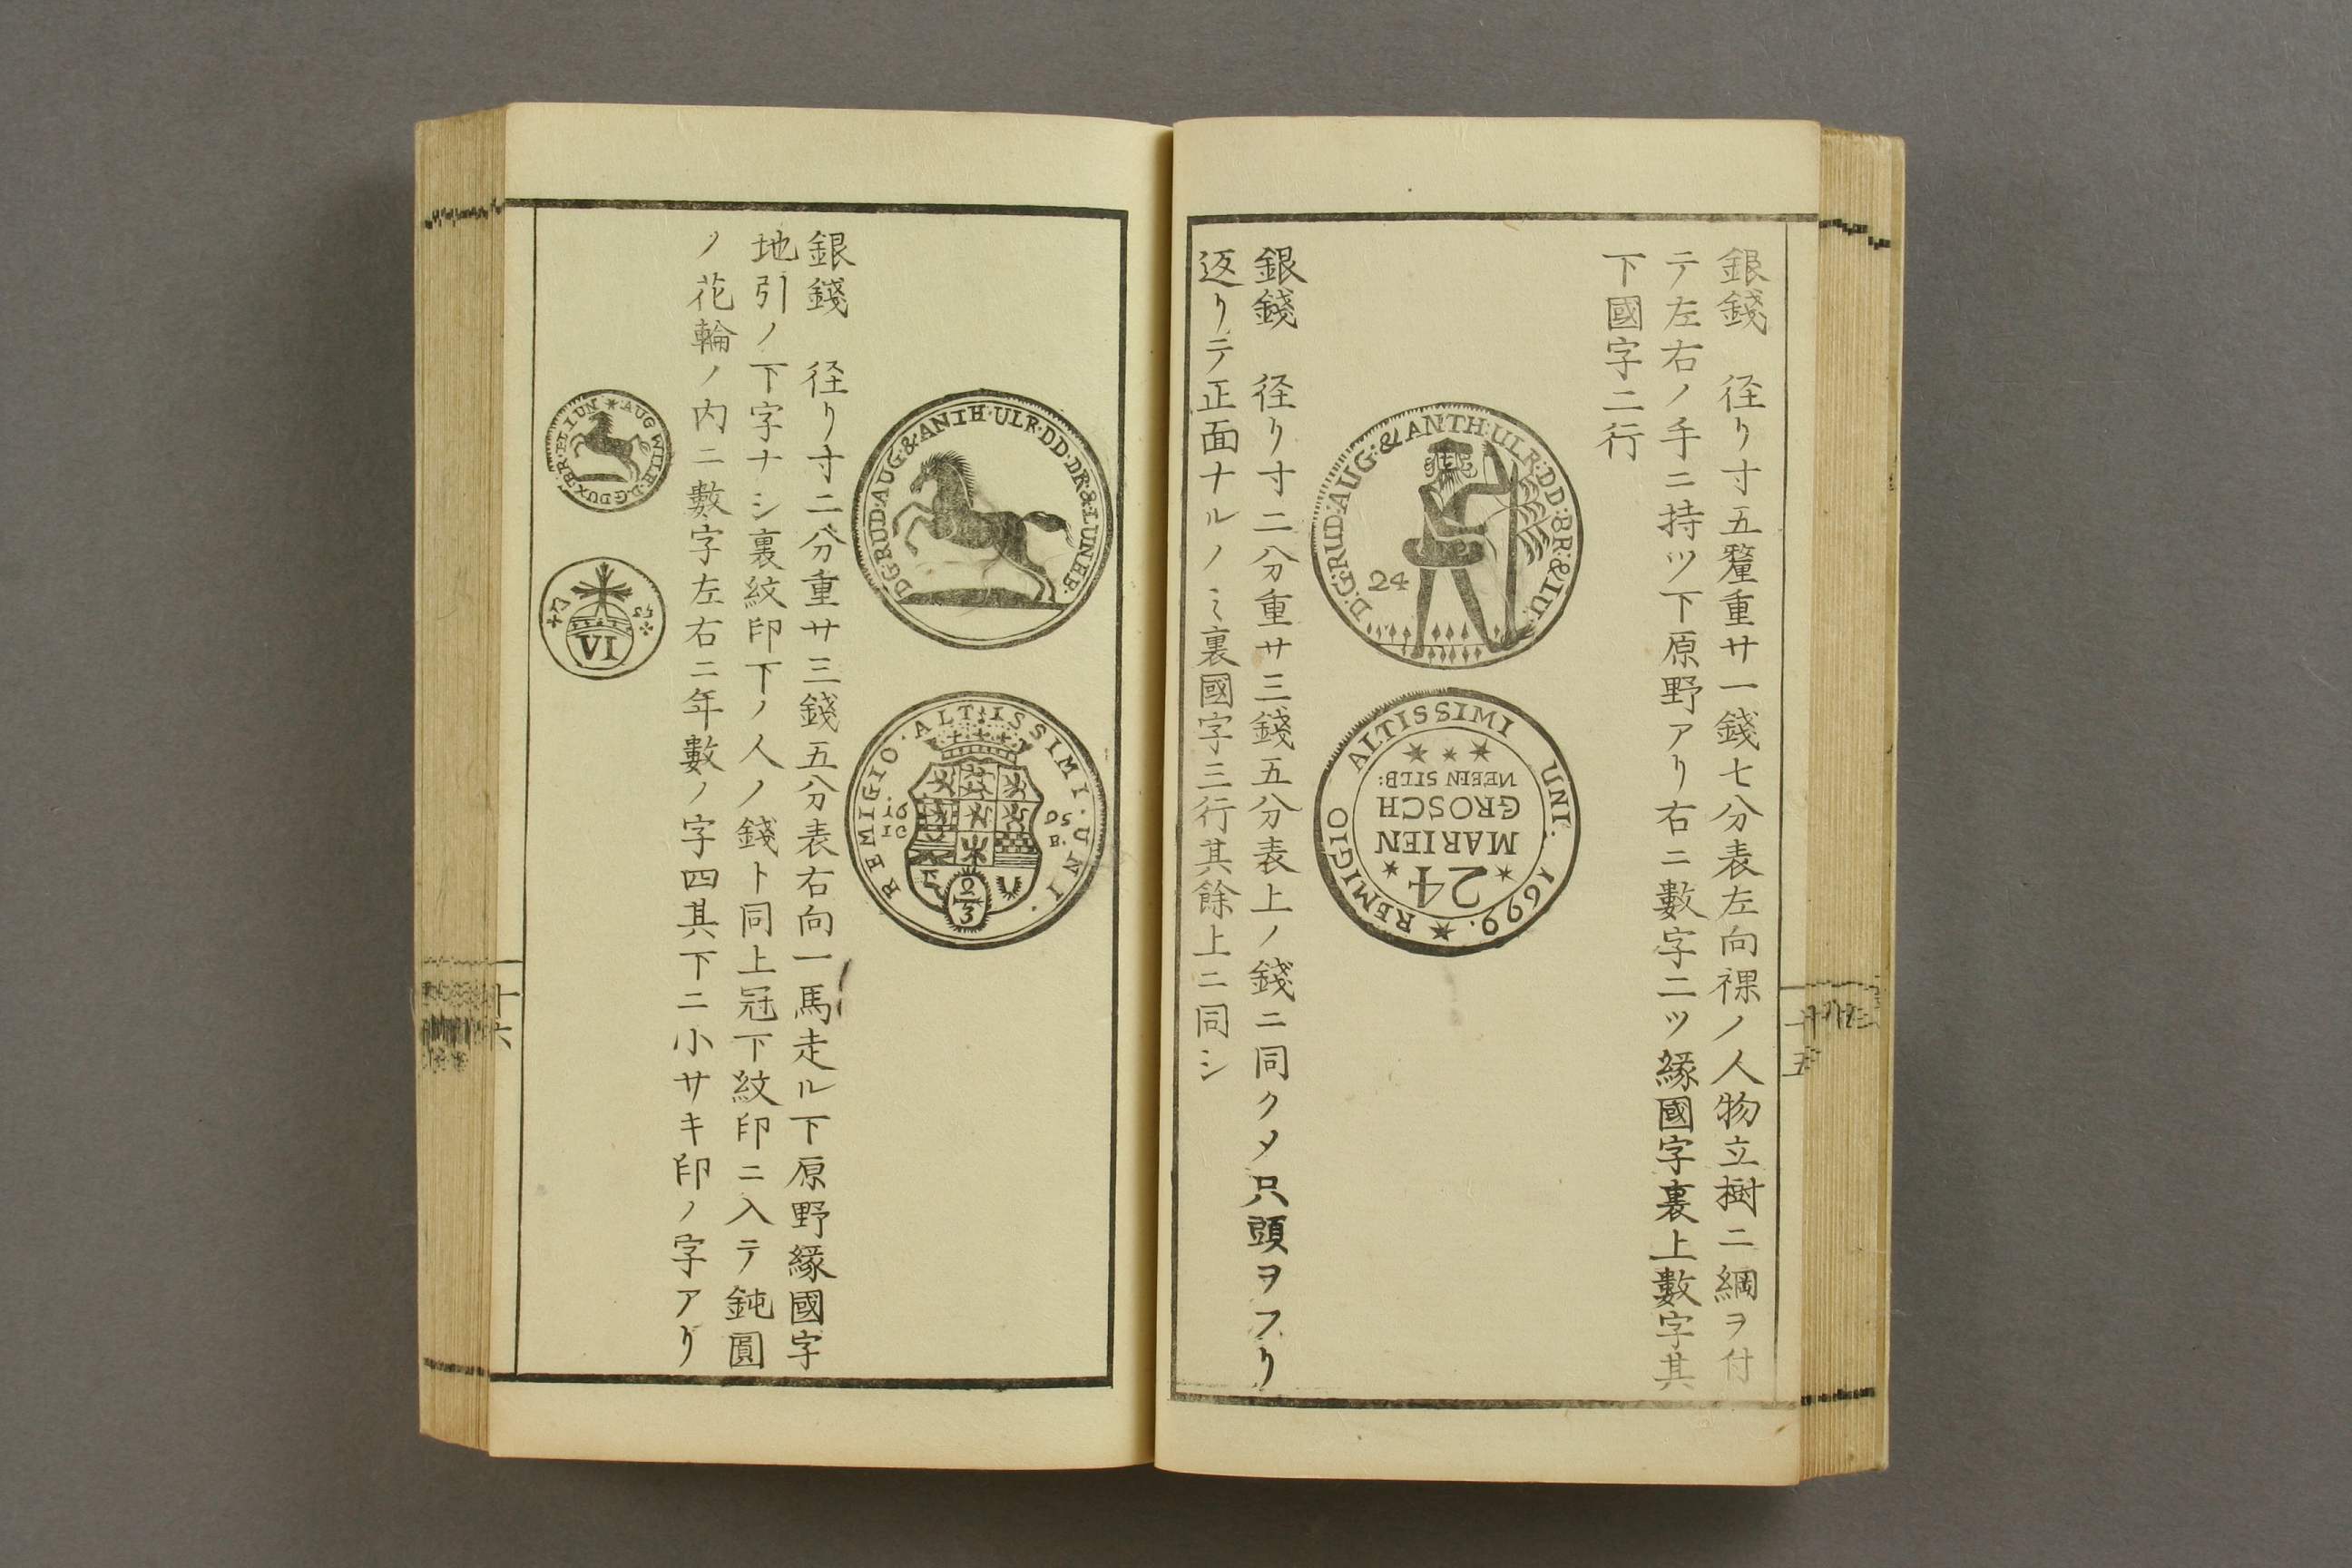 銀錢　径リ寸五釐重サ一錢七分表左向裸ノ人物立樹ニ綱ヲ付
テ左右ノ手ニ持ツ下原野アリ右ニ數字二ツ縁國字裏上數字其
下國字二行
D:G:RUD:AUG:&ANTH:ULR:DD:BR:&LU:
24
REMIGIO ALTISSIMI UNI. 1699.
24
MARIEN
GROSCH
銀錢　径リ寸二分重サ三錢五分表上ノ錢ニ同クメ只頭ヲフリ
返リテ正面ナルノミ裏國字三行其餘上ニ同シ
十五
D:G:RUD:AUG:&ANTH:ULR:DD:DR&LUNEB:
REMIGIO·ALTISSIMI·UNI.
16
95
2/3
銀錢　径リ寸二分重サ三錢五分表右向一馬走ル下原野縁國字
地引ノ下字ナシ裏紋印下ノ人ノ錢ト同上冠下紋印ニ入テ鈍圓
ノ花輪ノ内ニ數字左右ニ年數ノ字四其下ニ小サキ印ノ字アリ
VI
十六